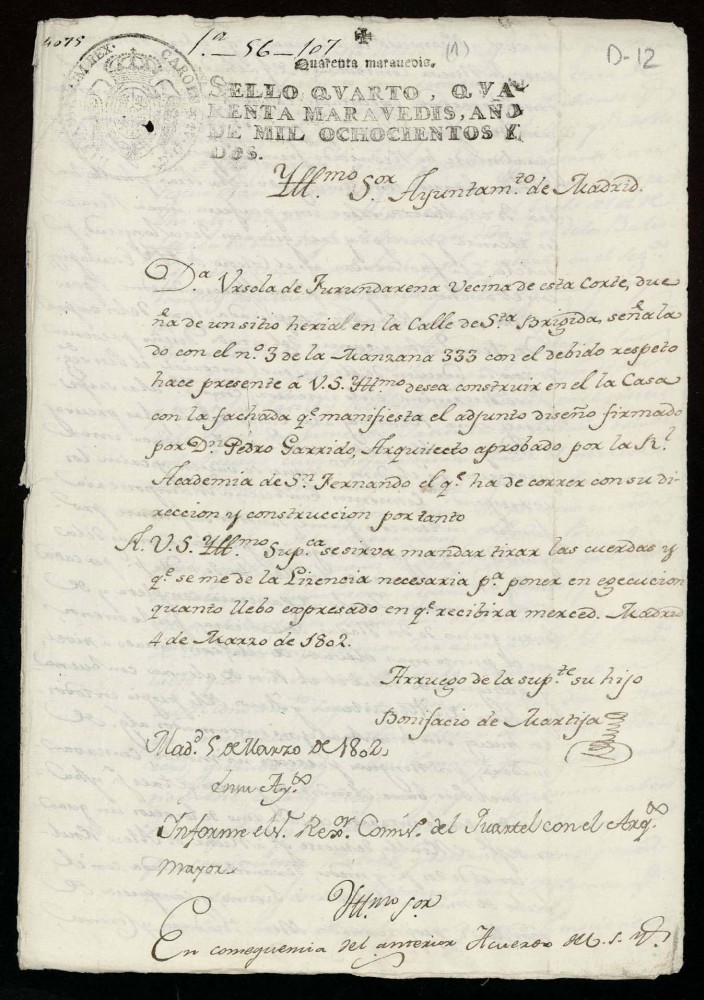 4075
1.ª - 56 - 107 (1) D-12
Quarenta maravedis.
SELLO QVARTO, QVA
RENTA MARAVEDIS, AÑO
DE MIL OCHOCIENTOS Y
DOS.
Yll.mo S.or Ayuntam.to de Madrid.
D.a Vrsola de Furundarena Vecina de esta Corte, due
ña de un sitio herial en la Calle de S.ta Brigida, señala
do con el n.º 3 de la Manzana 333 con el debido respeto
hace presente á V. S. Yll.mo desea construir en el la Casa
con la fachada q.e manifiesta el adjunto diseño firmado
por D.n Pedro Garrido, Arquitecto aprobado por la R.l
Academia de S.n Fernando el q.e ha de correr con su di-
reccion y construccion por tanto
A. V. S. Yll.mo Sup.ca se sirva mandar tirar las cuerdas y
q.e se me de la Licencia necesaria p.a poner en egecucion
quanto llebo expresado en q.e recibira merced. Madrid
4 de Marzo de 1802.
Arruego de la sup.te su hijo
Bonifacio de Martija
Mad.d 5 de Marzo de 1802
En su Ay.to
Informe el S.r Rex.or Comis.o del Quartel con el Arq.to
mayor
Yll.mo Sor
En consequencia del anterior Acuerdo de V. S. Y.